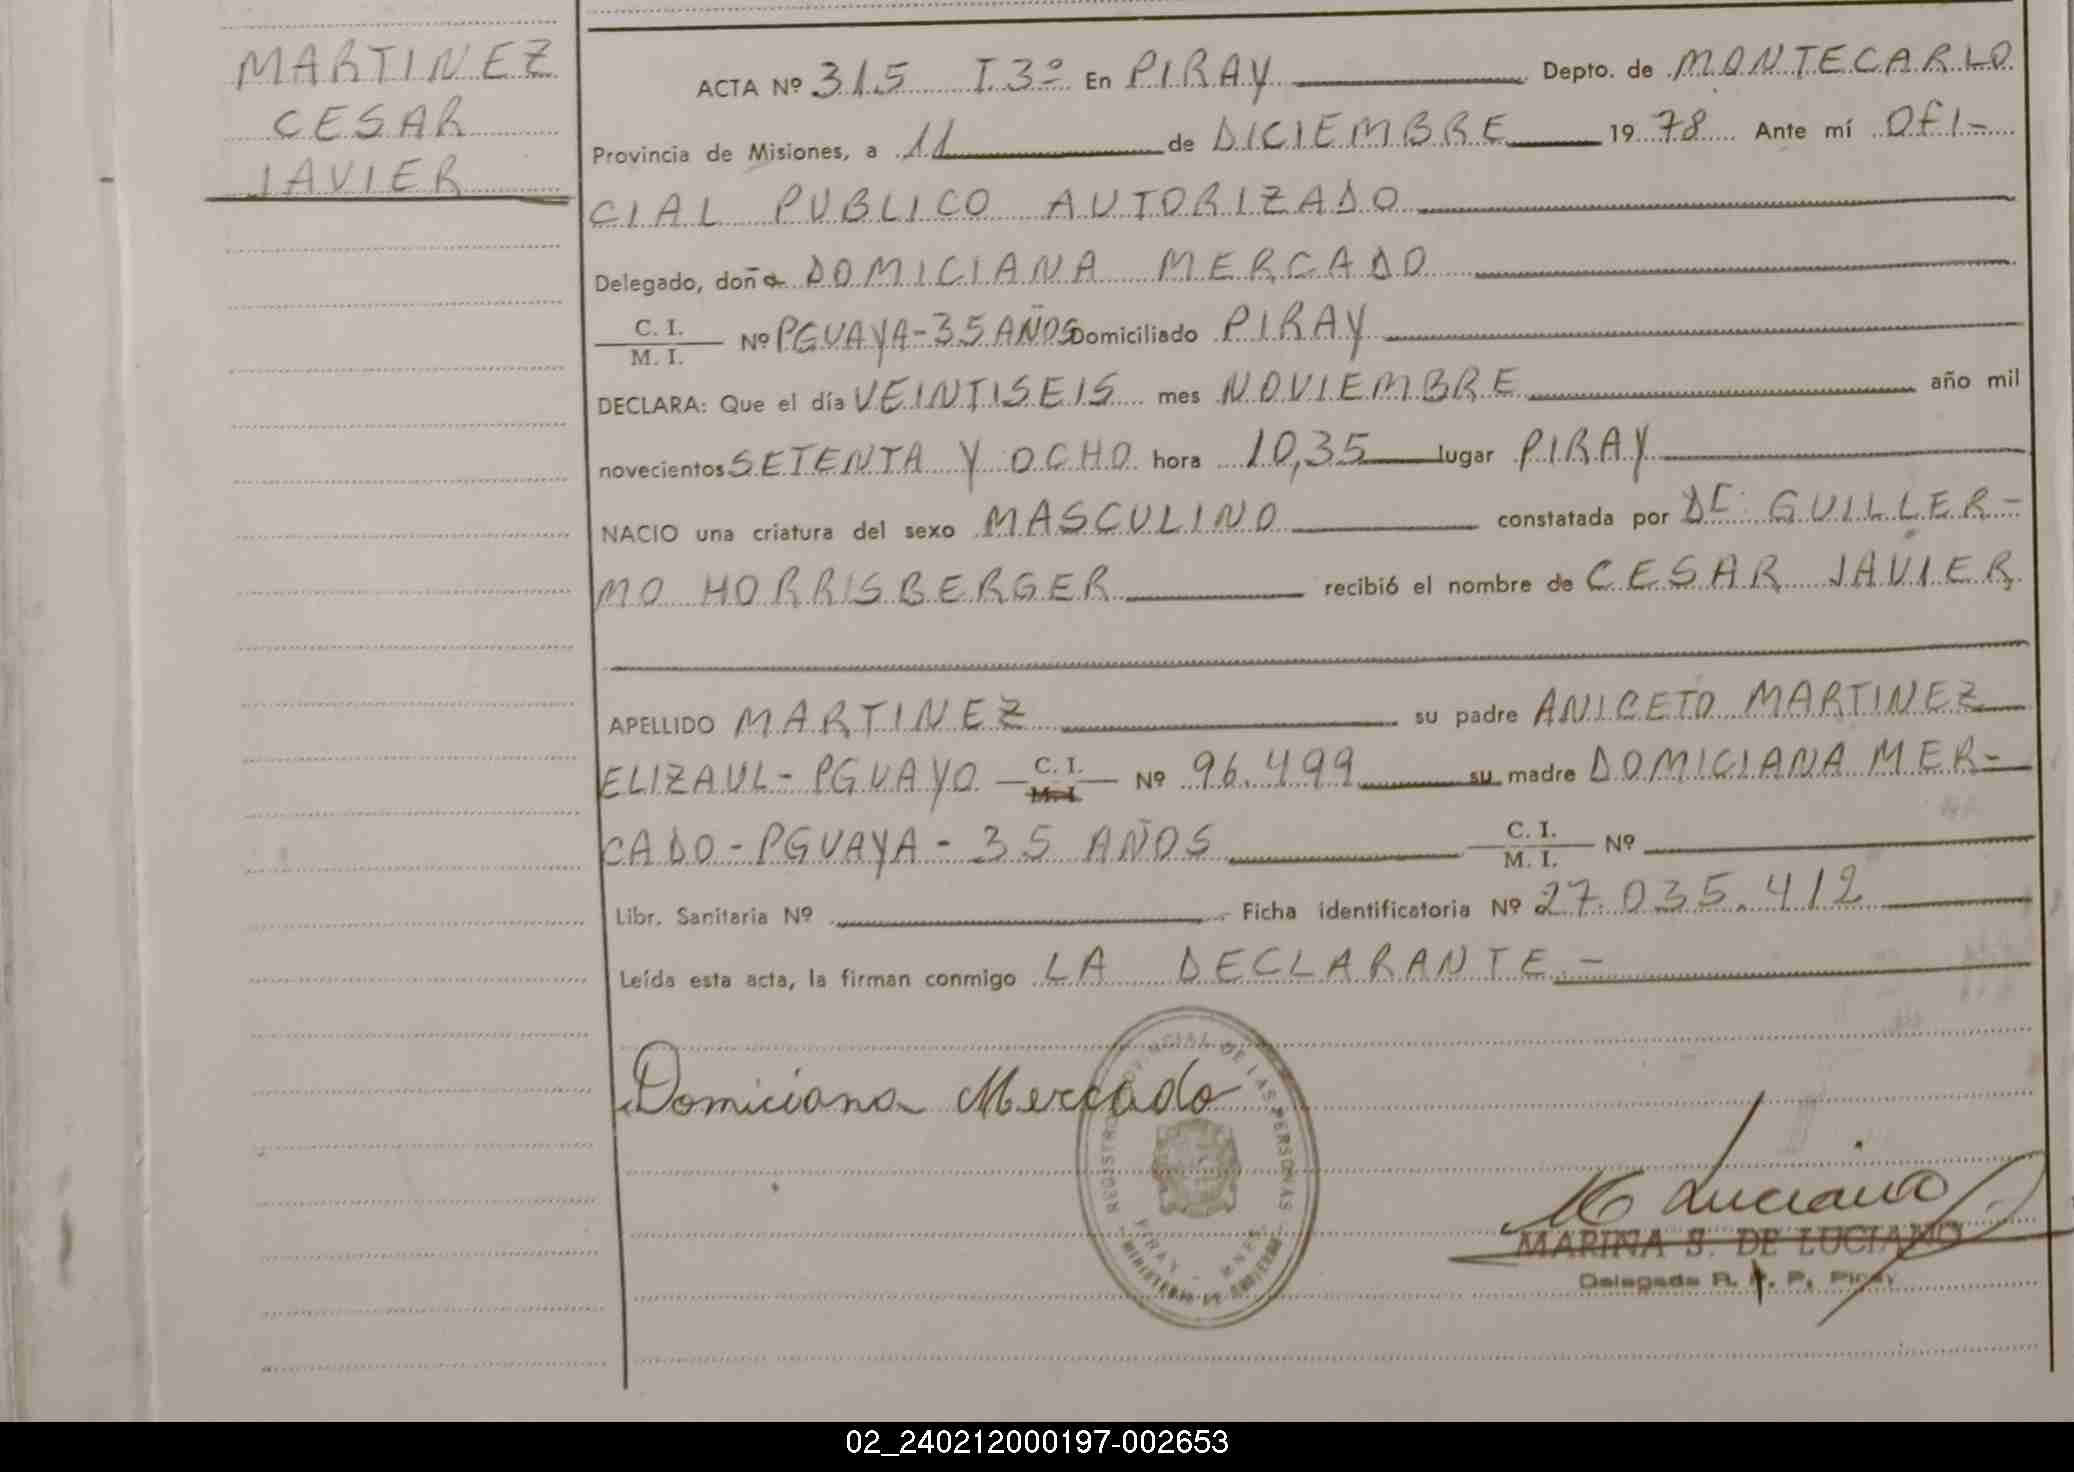 MARTINEZ
CESAR
JAVIER
ACTA Nº 315 T.3º En PIRAY Depto. de MONTECARLO
Provincia de Misiones, a 11 de DICIEMBRE 1978 Ante mí OFI-
CIAL PUBLICO AUTORIZADO
Delegado, doña DOMICIANA MERCADO
C. I.
M. I.
Nº PGUAYA-35 AÑOS Domiciliado PIRAY
DECLARA: Que el día VEINTISEIS mes NOVIEMBRE año mil
novecientos SETENTA Y OCHO hora 10,35 lugar PIRAY
NACIO una criatura del sexo MASCULINO constatada por Dr GUILLER-
MO HORRISBERGER recibió el nombre de CESAR JAVIER
APELLIDO MARTINEZ su padre ANICETO MARTINEZ
ELIZAUL- PGUAYO C. I. M. I. Nº 96.499 su madre DOMICIANA MER-
CADO - PGUAYA - 35 AÑOS C. I. M. I. Nº
Libr. Sanitaria Nº Ficha identificatoria Nº 27.035.412
Leída esta acta, la firman conmigo LA DECLARANTE.-
Domiciana Mercado
REGISTRO PROVINCIAL DE LAS PERSONAS
PIRAY - MNES.
MINISTERIO DE GOBIERNO
M Luciano
MARINA S. DE LUCIANO
Delegada R. P. P. Piray
02_240212000197-002653